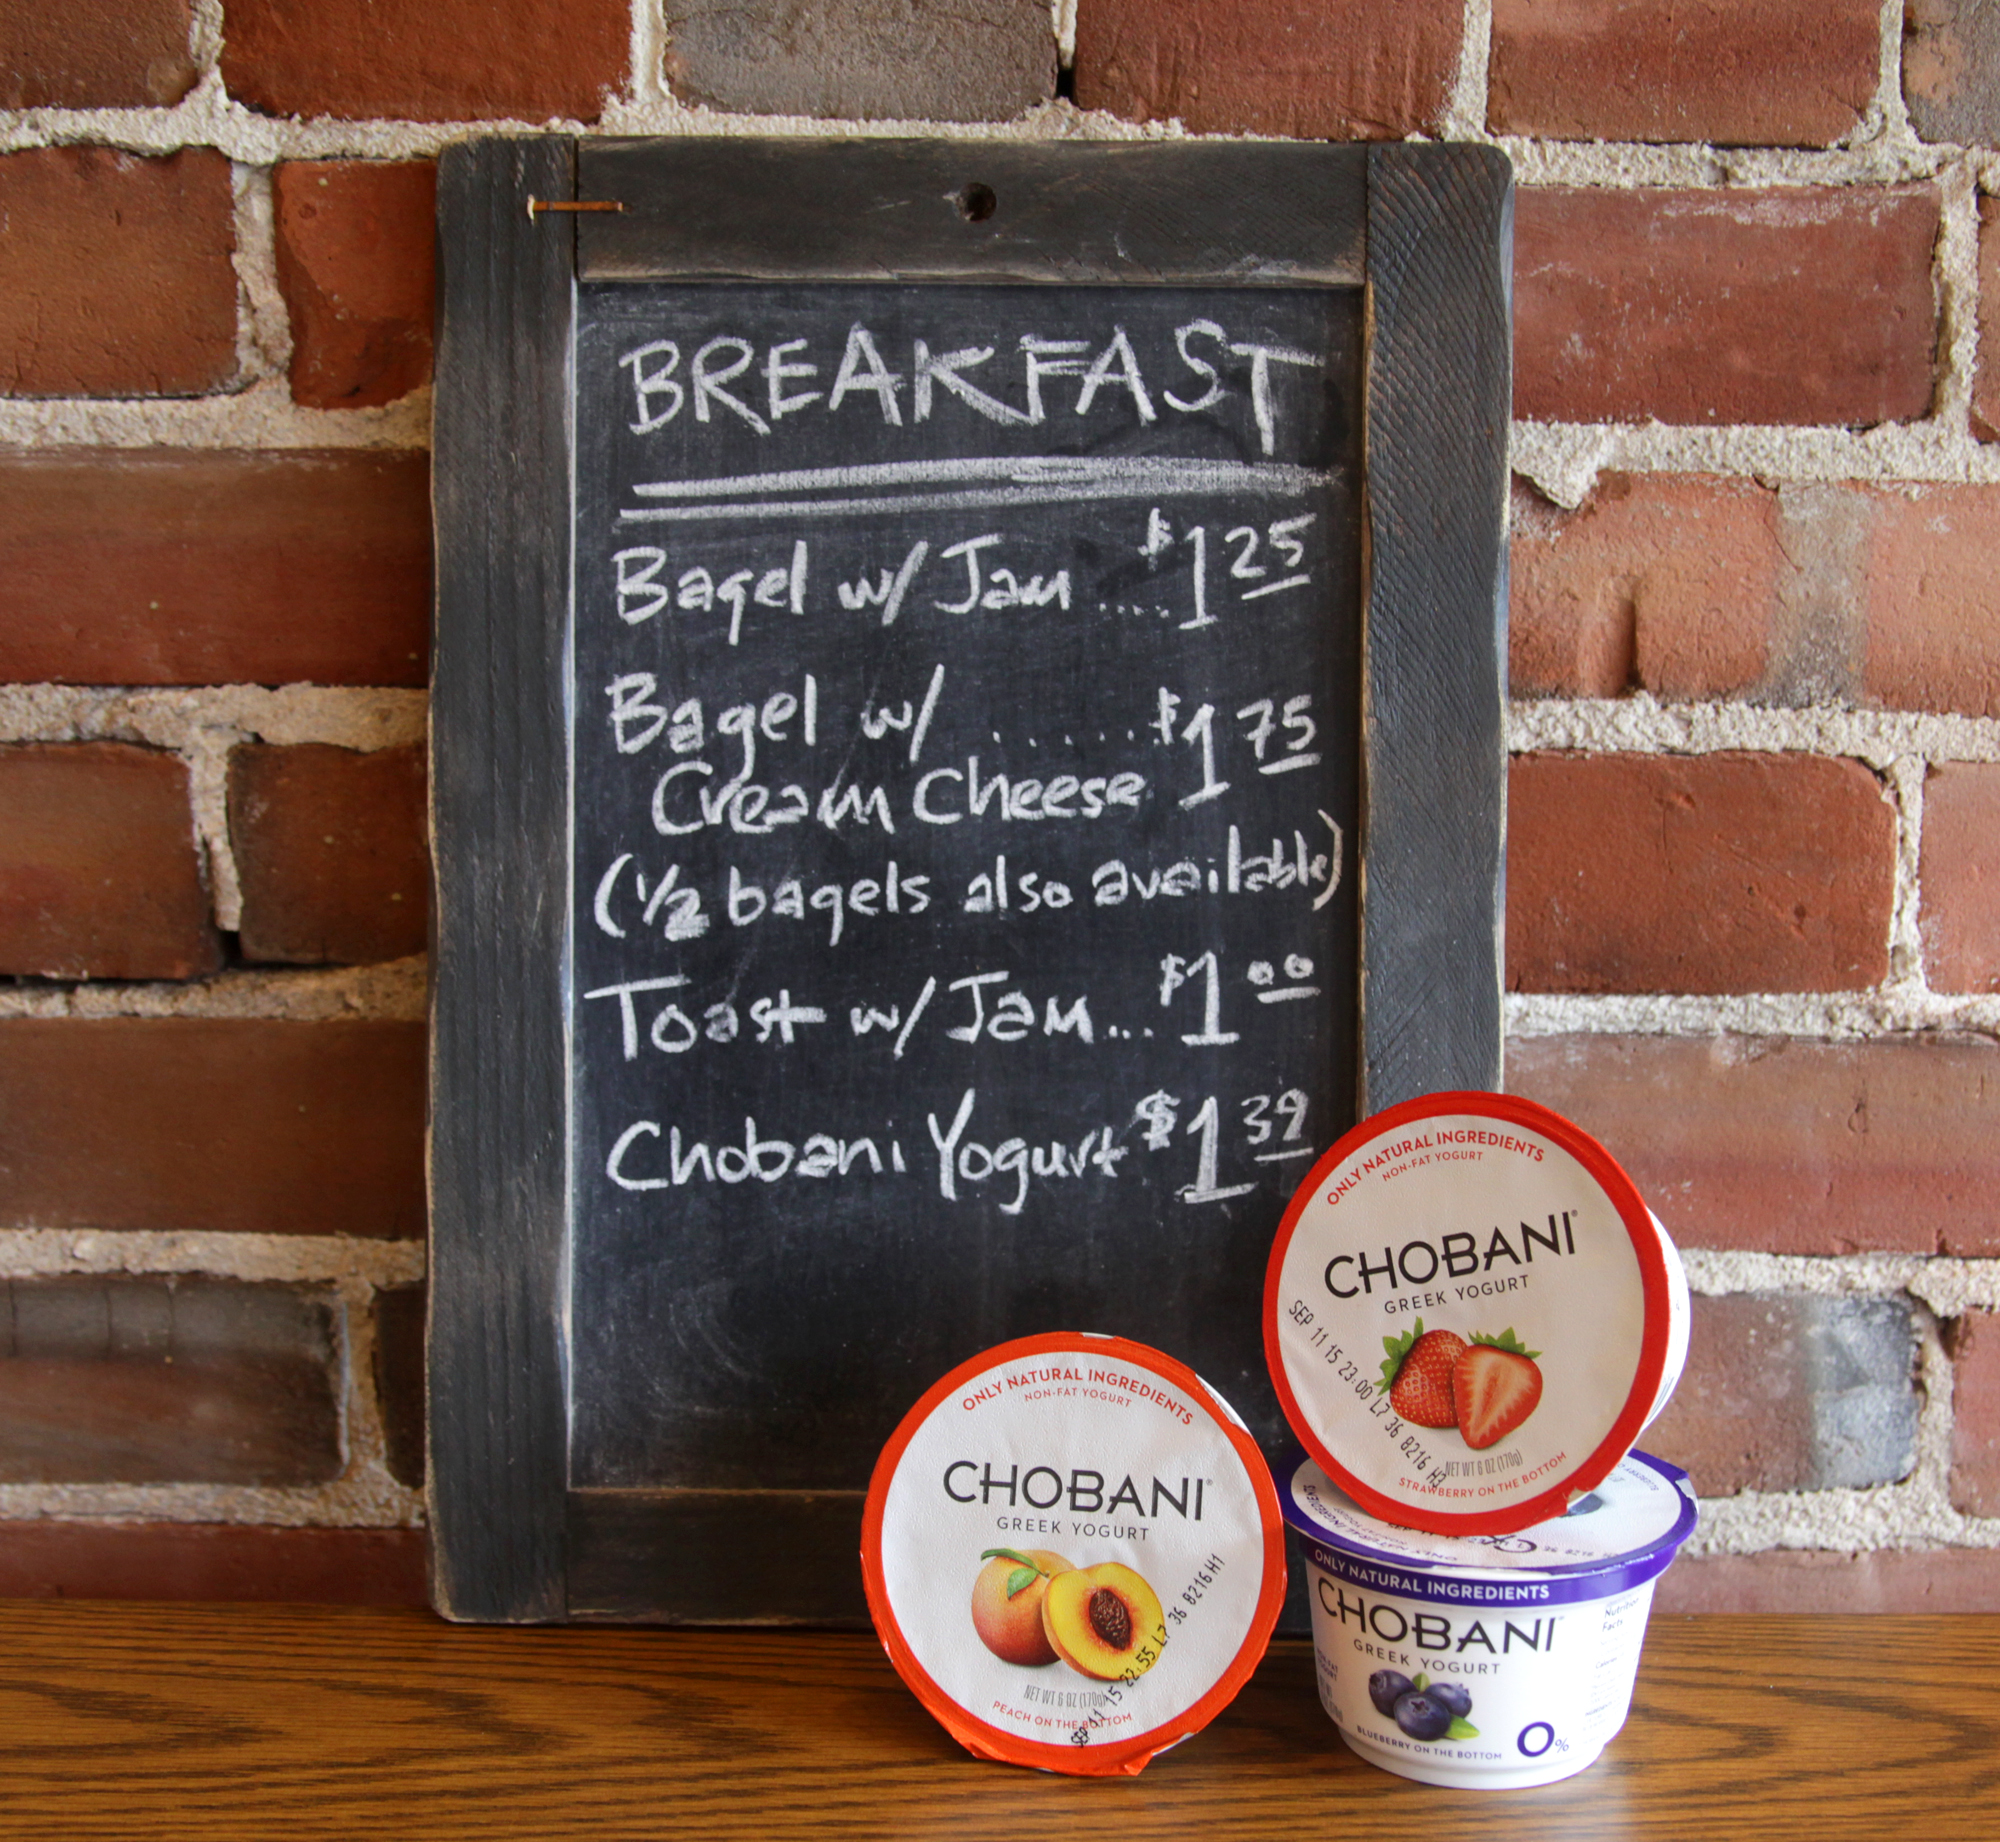 BREAKFAST
Bagel w/ Jam .... $1 25
Bagel w/ ...... $1 75
Cream Cheese
(1/2 bagels also available)
Toast w/ Jam... $1 00
Chobani Yogurt $1 39
ONLY NATURAL INGREDIENTS
NON-FAT YOGURT
CHOBANI®
GREEK YOGURT
SEP 11 15 23:00 L7 36 8216 H3
NET WT 6 OZ (170g)
STRAWBERRY ON THE BOTTOM
ONLY NATURAL INGREDIENTS
NON-FAT YOGURT
CHOBANI®
GREEK YOGURT
NET WT 6 OZ (170g)
PEACH ON THE BOTTOM
SEP 11 15 22:55 L7 36 8216 H1
ONLY NATURAL INGREDIENTS
CHOBANI
GREEK YOGURT
BLUEBERRY ON THE BOTTOM
0%
Nutrition
Facts